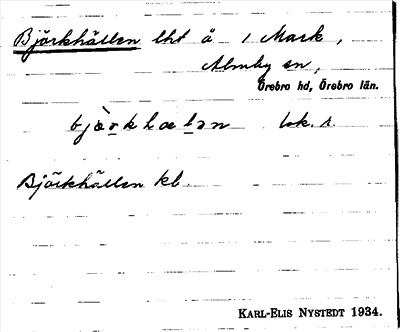 Björkhällen lht å 1 Mark,
Almby sn,
Örebro hd, Örebro län.
bjærkhælən bk. s.
Björkhällen kl
KARL-ELIS NYSTEDT 1934.